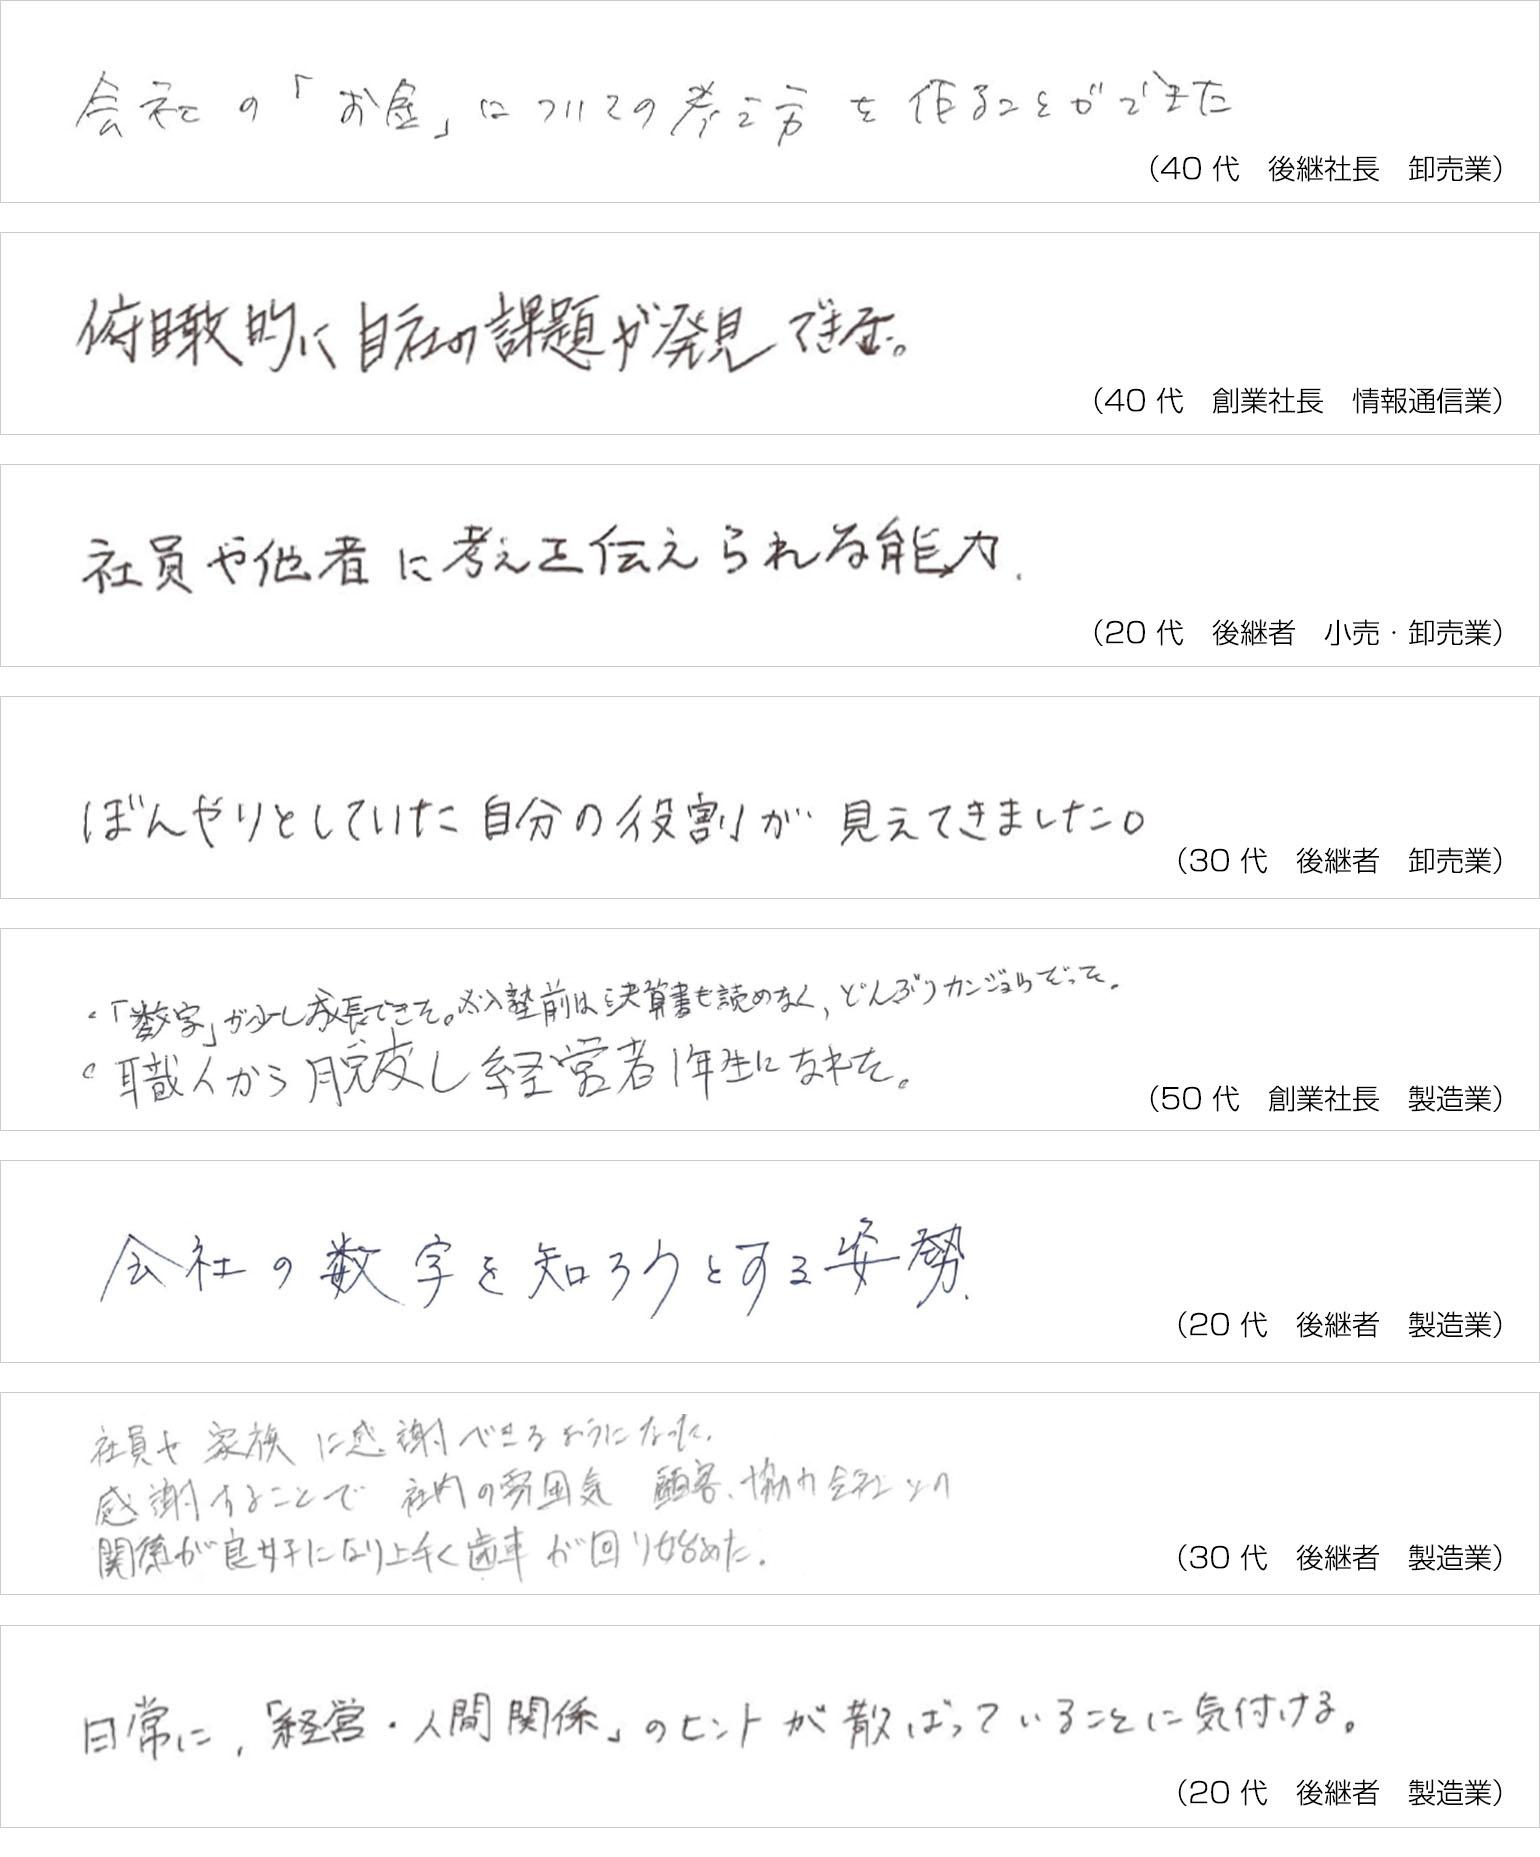 会社の「お金」についての考え方を作ることができた
（40 代　後継社長　卸売業）
俯瞰的に自社の課題が発見できた。
（40 代　創業社長　情報通信業）
社員や他者に考えを伝えられる能力.
（20 代　後継者　小売・卸売業）
ぼんやりとしていた自分の役割が見えてきました。
（30 代　後継者　卸売業）
・「数字」が少し成長できた。※入塾前は決算書も読めなく，どんぶりカンジョウだった．
・職人から脱皮し経営者1年生になれた。
（50 代　創業社長　製造業）
会社の数字を知ろうとする姿勢.
（20 代　後継者　製造業）
社員や家族に感謝できるようになった．
感謝することで 社内の雰囲気 顧客、協力会社との
関係が良好になり上手く歯車が回り始めた．
（30 代　後継者　製造業）
日常に，「経営・人間関係」のヒントが散ばっていることに気付ける。
（20 代　後継者　製造業）